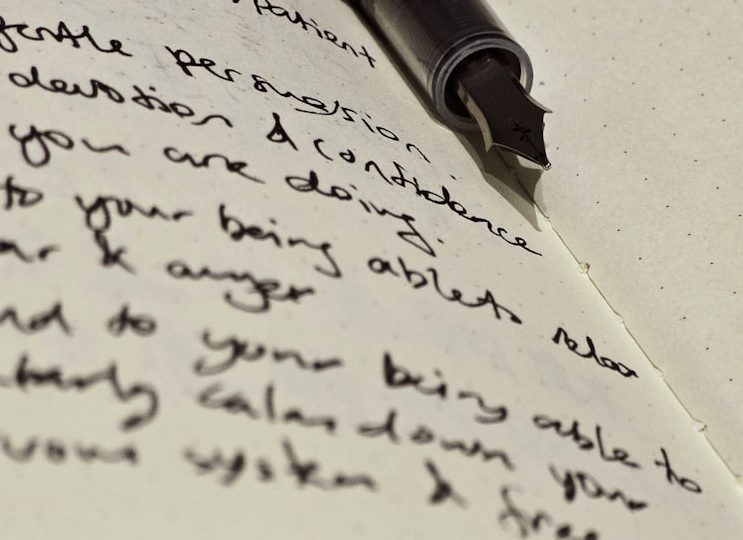 Patient
gentle persuasion.
devotion & confidence
you are doing.
to your being able to relax
& anger
to your being able to
calm down your
system & free